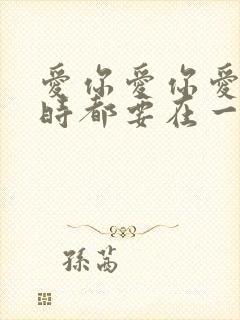 愛你愛你愛
時都要在一
孫芮